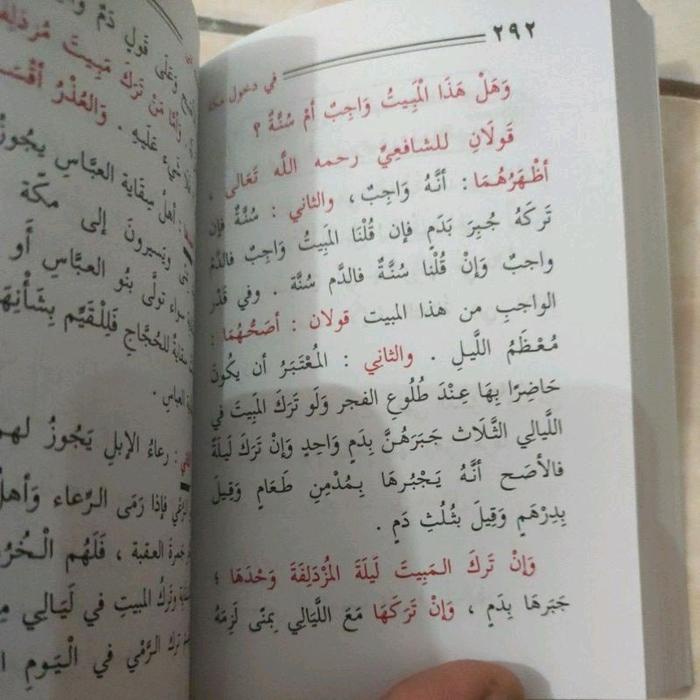 ٢٩٢
في دخول مكة
وَهَلْ هَذَا الْمَبِيتُ وَاجِبٌ أَمْ سُنَّةٌ ؟
قَولَانِ للشافعِيِّ رحمه اللَّه تَعَالى ،
أَظْهَرُهُمَا : أَنَّهُ وَاجِبٌ ، والثاني : سُنَّةٌ فإن
تَرَكَهُ جُبِرَ بَدَمٍ فإن قُلْنَا المَبِيتُ وَاجِبٌ فالدَّم
واجبٌ وَإنْ قُلْنا سُنَّةٌ فالدَّم سُنَّة . وفي قَدْرِ
الواجبِ من هذا المبيت قولان : أصَحُّهُمَا :
مُعْظَمُ اللَّيلِ . والثَّانِي : المُعْتَبَرُ أن يكُونَ
حَاضِرًا بِهَا عِنْدَ طُلُوعِ الفجر وَلَو تَرَكَ المَبِيتَ في
اللَّيالي الثَّلَاث جَبَرَهُنَّ بِدَمٍ وَاحِدٍ وَإنْ تَرَكَ لَيلَةً
فالأصَح أَنَّهُ يَجْبُرهَا بِمُدْمِن طَعَامٍ وَقِيلَ
بِدِرْهَمٍ وَقِيلَ بثُلُثِ دَمٍ .
وَإنْ تَرَكَ المَبِيتَ لَيلَةَ المُزْدَلِفَةَ وَحْدَهَا ؛
جَبَرهَا بِدَمٍ ، وَإنْ تَرَكَهَا مَعَ اللَّيَالِي بِمنًى لَزِمَهُ
وَعَلَى قَولِ دَمٌ
وَأمَّا مَنْ تَرَكَ مَبِيتَ مُزدَلِفَة
شَيْءَ عَلَيهِ . وَالعُذْرُ أقْسَا
أهلُ سِقاية العبَّاسِ يجُوزُ
ويَسيرونَ إلى مكَّة
سواء تولَّى بنُو العبَّاس أَو
للحُجَّاجِ فَلِلْقَيِّم بِشَأْنِهَا
العباسِ .
رعاءُ الإبلِ يَجُوزُ لهم
فإذا رَمَى الرِّعاء وَأهلُ
جمرةَ العقبة ، فَلَهُم الْخُرُ
وتَركُ المبيتِ في لَيَالِي مِ
ترك الرَّمْي في الْيَومِ ا